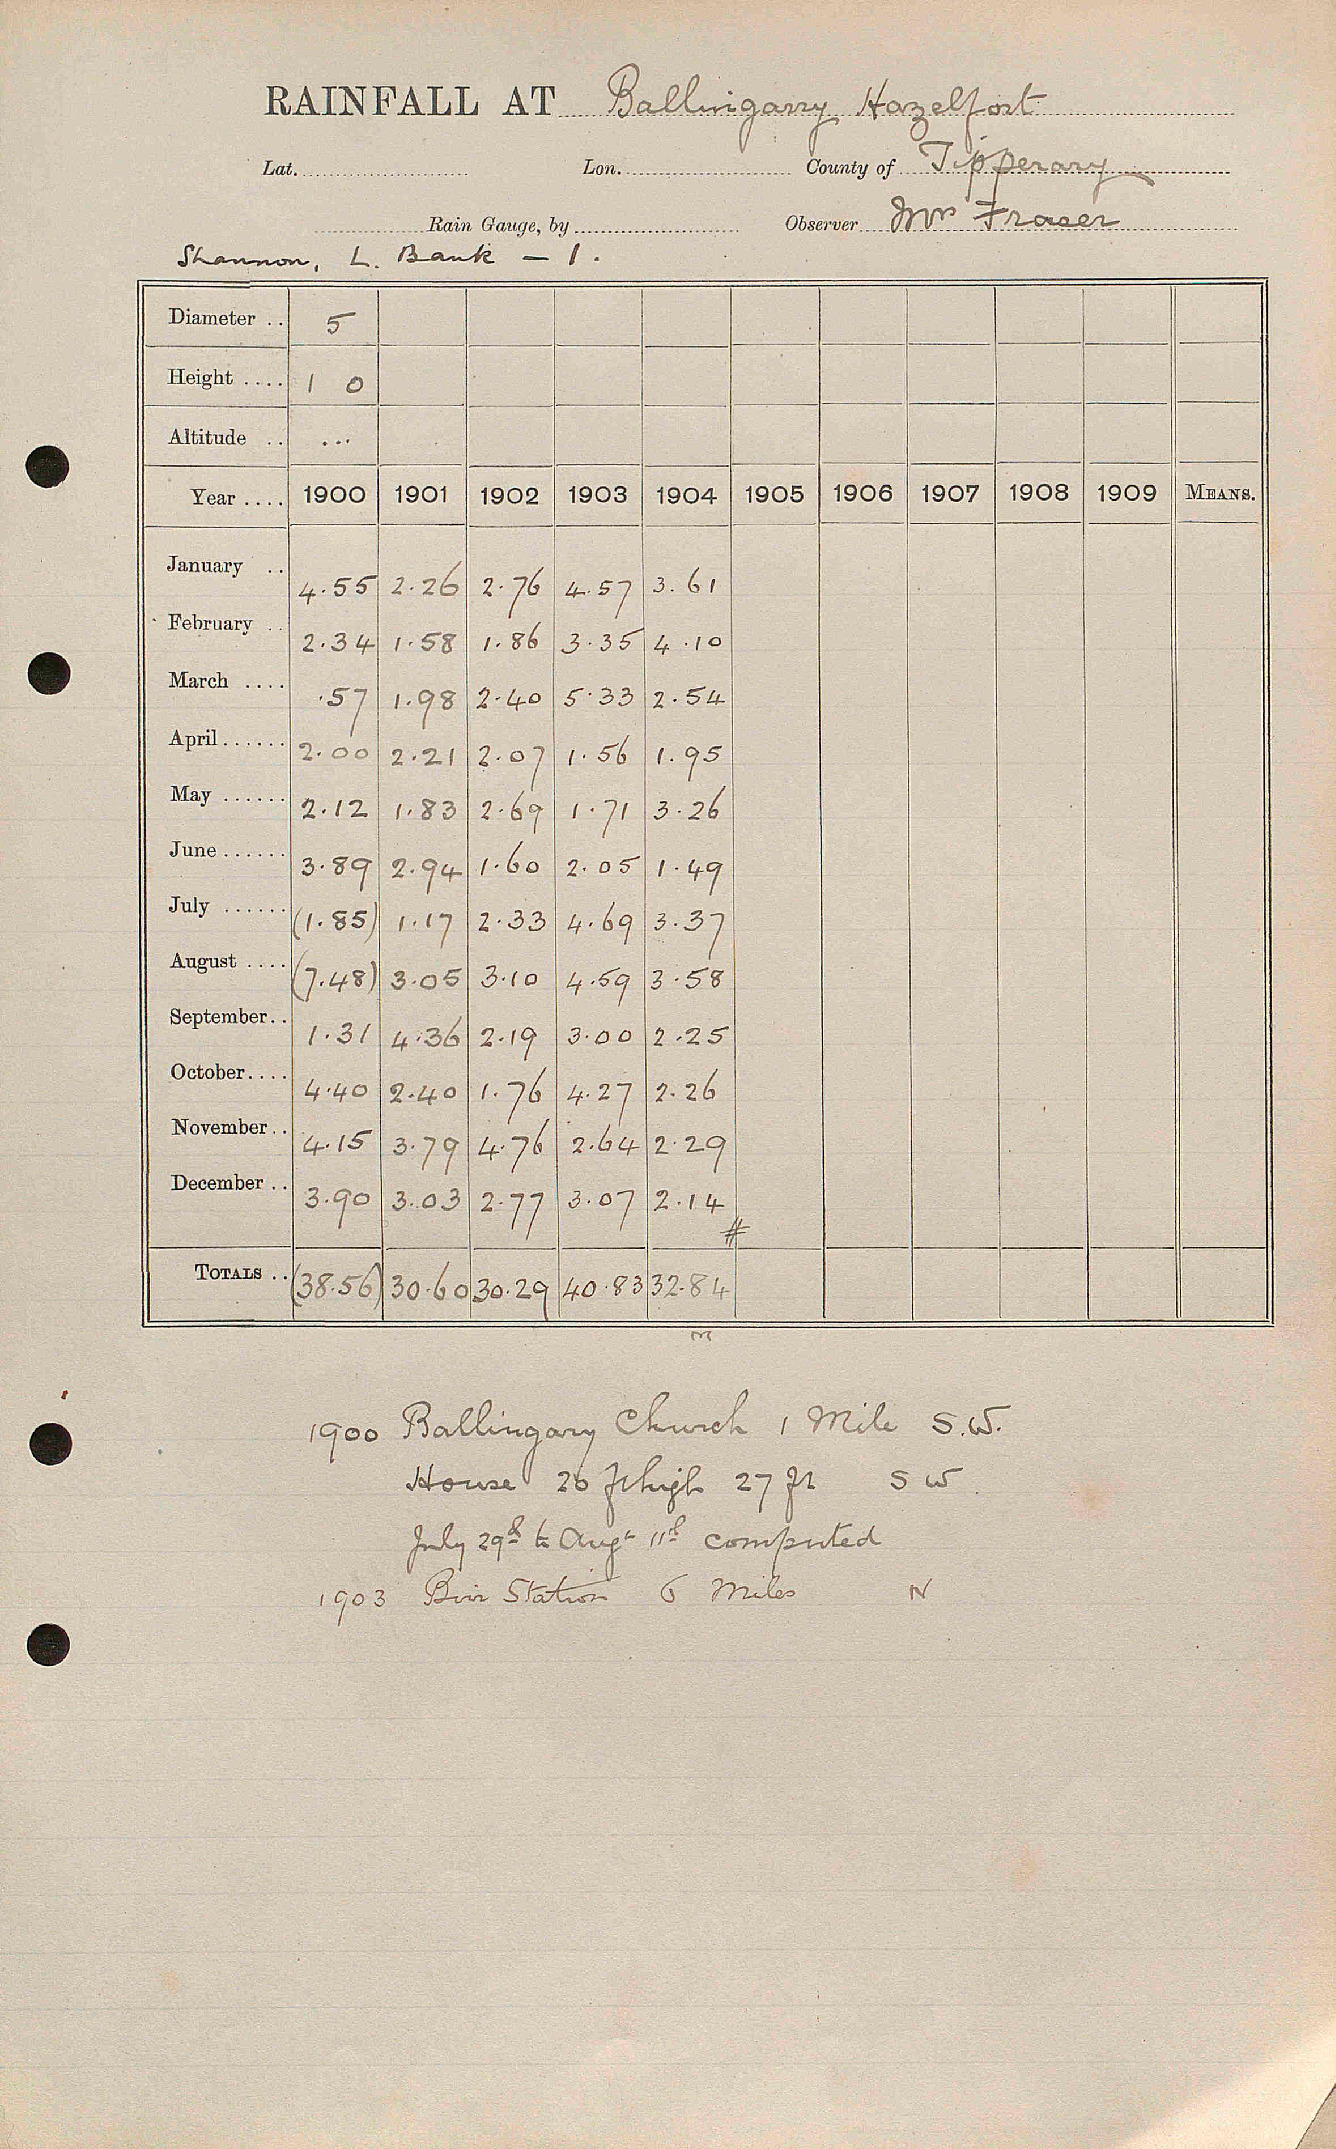 RAINFALL AT Ballingarry Hazelfort
Lat. Lon. County of Tipperary
Rain Gauge, by Observer Mr Fraser
Shannon, L. Bank — 1.
Diameter .. 5
Height .... 1 0
Altitude .. ...
Year .... 1900 1901 1902 1903 1904 1905 1906 1907 1908 1909 MEANS.
January .. 4.55 2.26 2.76 4.57 3.61
February .. 2.34 1.58 1.86 3.35 4.10
March .... .57 1.98 2.40 5.33 2.54
April...... 2.00 2.21 2.07 1.56 1.95
May ...... 2.12 1.83 2.69 1.71 3.26
June...... 3.89 2.94 1.60 2.05 1.49
July ...... (1.85) 1.17 2.33 4.69 3.37
August .... (7.48) 3.05 3.10 4.59 3.58
September.. 1.31 4.36 2.19 3.00 2.25
October.... 4.40 2.40 1.76 4.27 2.26
November.. 4.15 3.79 4.76 2.64 2.29
December .. 3.90 3.03 2.77 3.07 2.14
#
TOTALS .. (38.56) 30.60 30.29 40.83 32.84
1900 Ballingary Church 1 Mile S.W.
House 20 ft high 27 ft S W
July 29th to Augt 11th computed
1903 Birr Station 6 Miles N